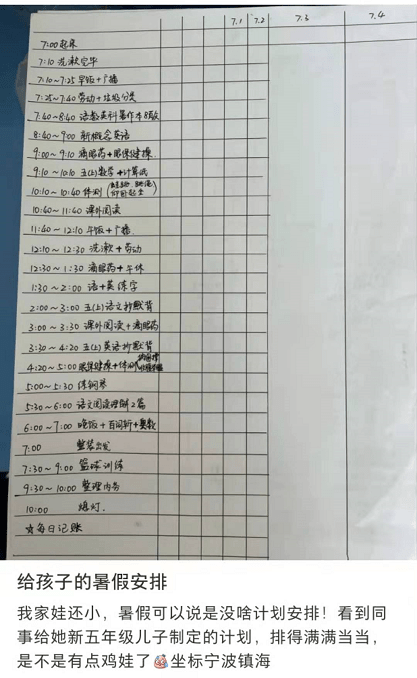 7.1 7.2 7.3 7.4
7:00 起床
7:10 洗漱完毕
7:10~7:25 早饭+广播
7:25~7:40 劳动+垃圾分类
7:40~8:40 语数英科暑作本8页
8:40~9:00 新概念英语
9:00~9:10 滴眼药+眼保健操
9:10~10:10 五(上)数学+计算纸
10:10~10:40 体测(跳绳
仰卧起坐
10:40~11:40 课外阅读
11:40~12:10 午饭+广播
12:10~12:30 洗漱+劳动
12:30~1:30 滴眼药+午休
1:30~2:00 语+英练字
2:00~3:00 五(上)语文抄默背
3:00~3:30 课外阅读+滴眼药
3:30~4:20 五(上)英语抄默背
4:20~5:00 眼保健操+体测
5:00~5:30 练钢琴
5:30~6:00 语文阅读理解2篇
6:00~7:00 晚饭+百问新+奥数
7:00 整装出发
7:30~9:00 篮球训练
9:30~10:00 整理内务
10:00 熄灯.
☆每日记账
给孩子的暑假安排
我家娃还小，暑假可以说是没啥计划安排！看到同
事给她新五年级儿子制定的计划，排得满满当当，
是不是有点鸡娃了🐔坐标宁波镇海